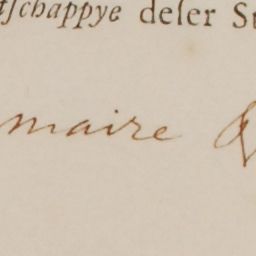 tſchappye deſer St
maire &